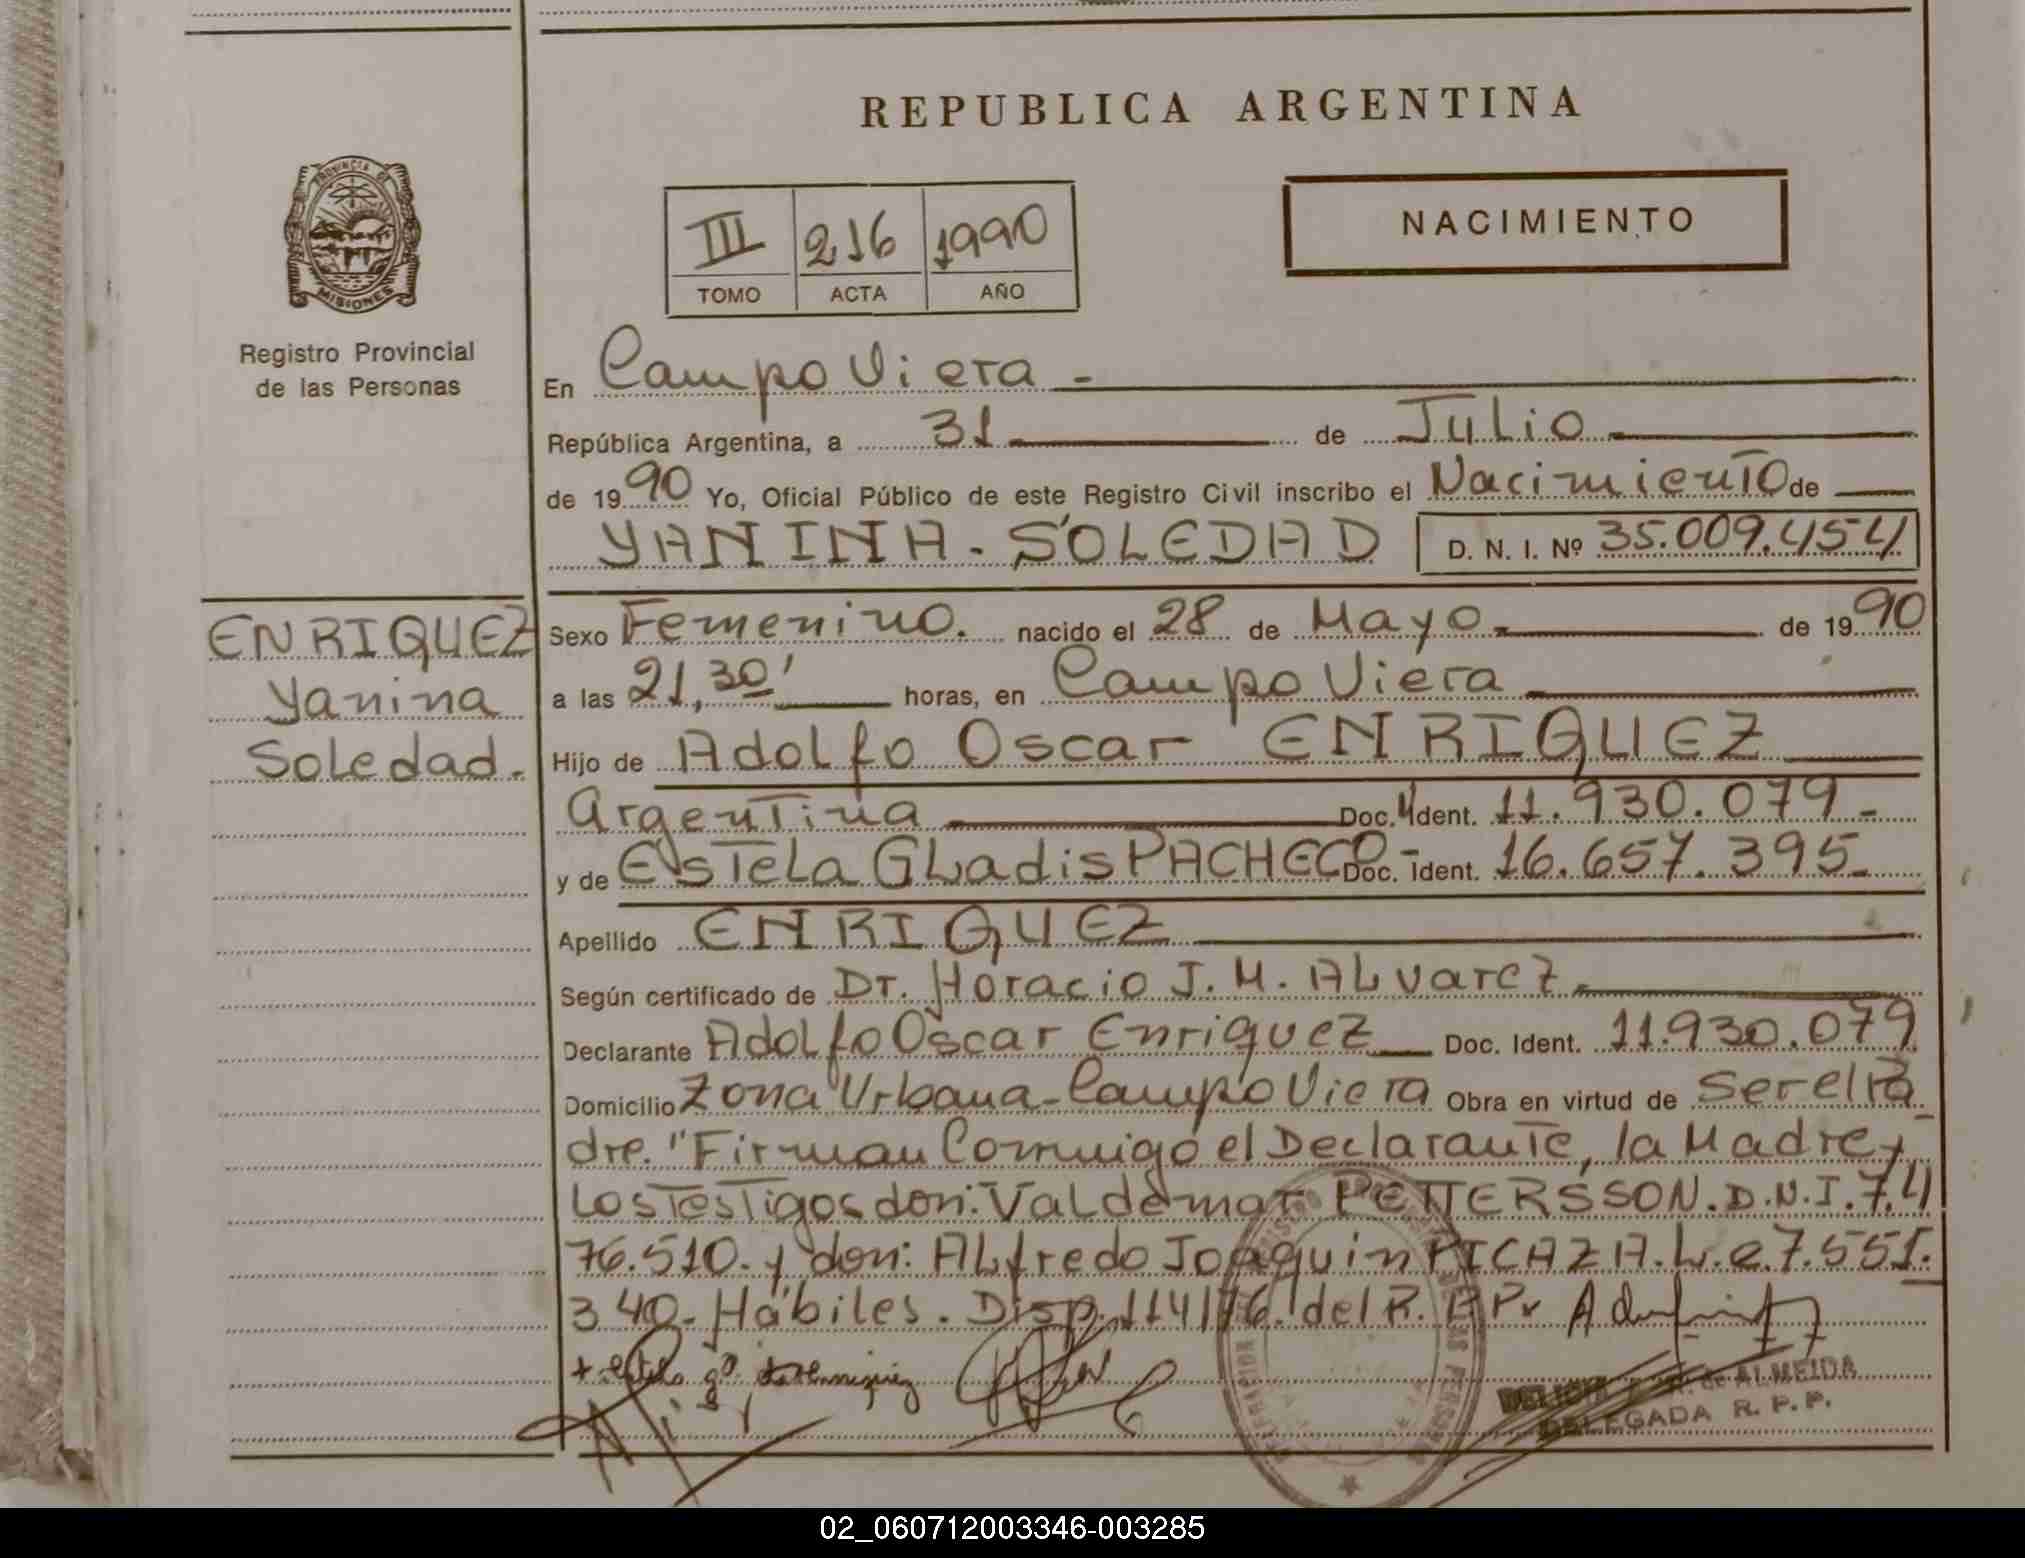 REPUBLICA ARGENTINA
PROVINCIA DE
MISIONES
Registro Provincial
de las Personas
III 216 1990
TOMO ACTA AÑO
NACIMIENTO
En Campo Viera -
República Argentina, a 31 de Julio
de 1990 Yo, Oficial Público de este Registro Civil inscribo el Nacimiento de
YANINA - SOLEDAD D. N. I. Nº 35.009.454
ENRIQUEZ
Yanina
Soledad.
Sexo Femenino. nacido el 28 de Mayo de 1990
a las 21,30' horas, en Campo Viera
Hijo de Adolfo Oscar ENRIQUEZ
Argentina Doc. Ident. 11.930.079-
y de Estela Gladis PACHECO - Doc. Ident. 16.657.395-
Apellido ENRIQUEZ
Según certificado de Dr. Horacio J. M. Alvarez
Declarante Adolfo Oscar Enriquez Doc. Ident. 11.930.079
Domicilio Zona Urbana - Campo Viera Obra en virtud de Ser el Pa
dre. "Firman Conmigo el Declarante, la Madre y
los Testigos don: Valdemar PETTERSSON. D.N.I. 7.4
76.510. y don: Alfredo Joaquin PICAZA. L.e. 7.551.
340. Hábiles. Disp. 114/76. del R. P. P.
DELEGADA R. P. P.
de ALMEIDA
02_060712003346-003285